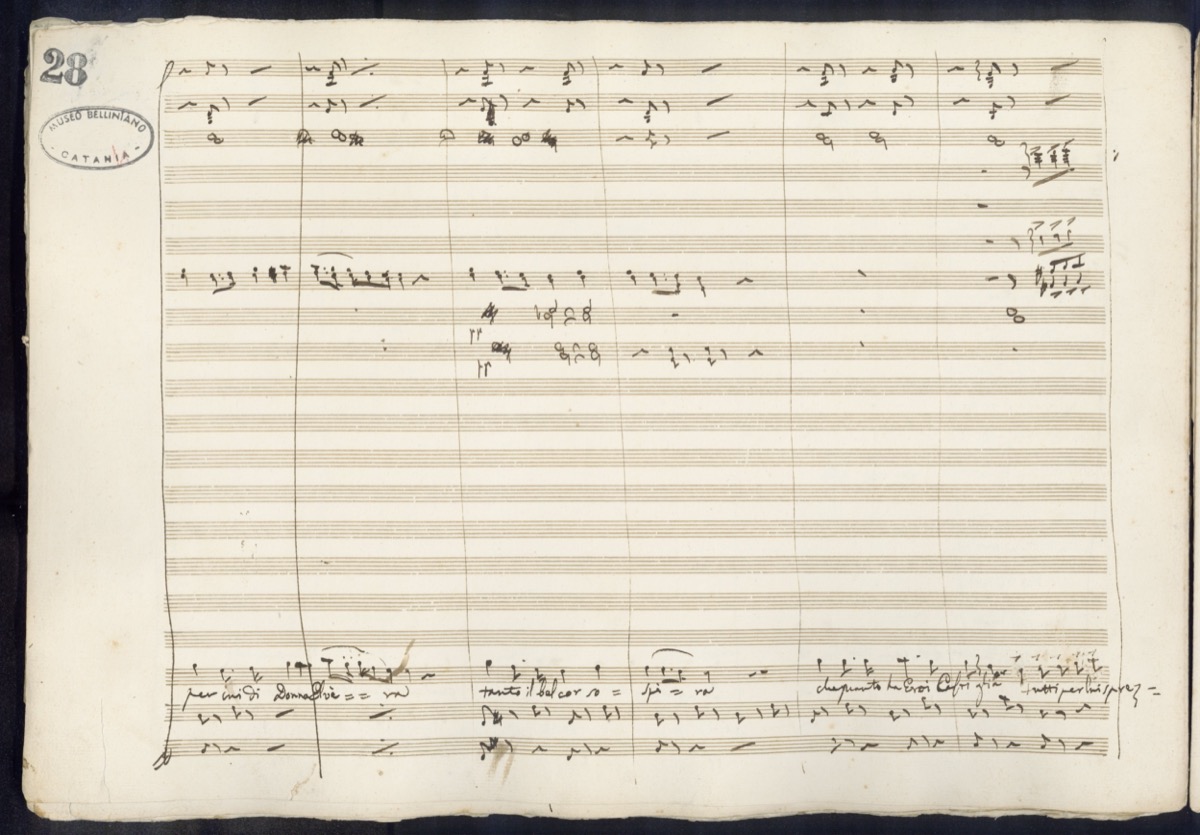 28
MUSEO BELLINIANO
CATANIA
pp
pp
per cui di Donna Elvi == ra
tanto il bel cor so = spi = ra
che quanto ha Eroi tutti per lui sprez =